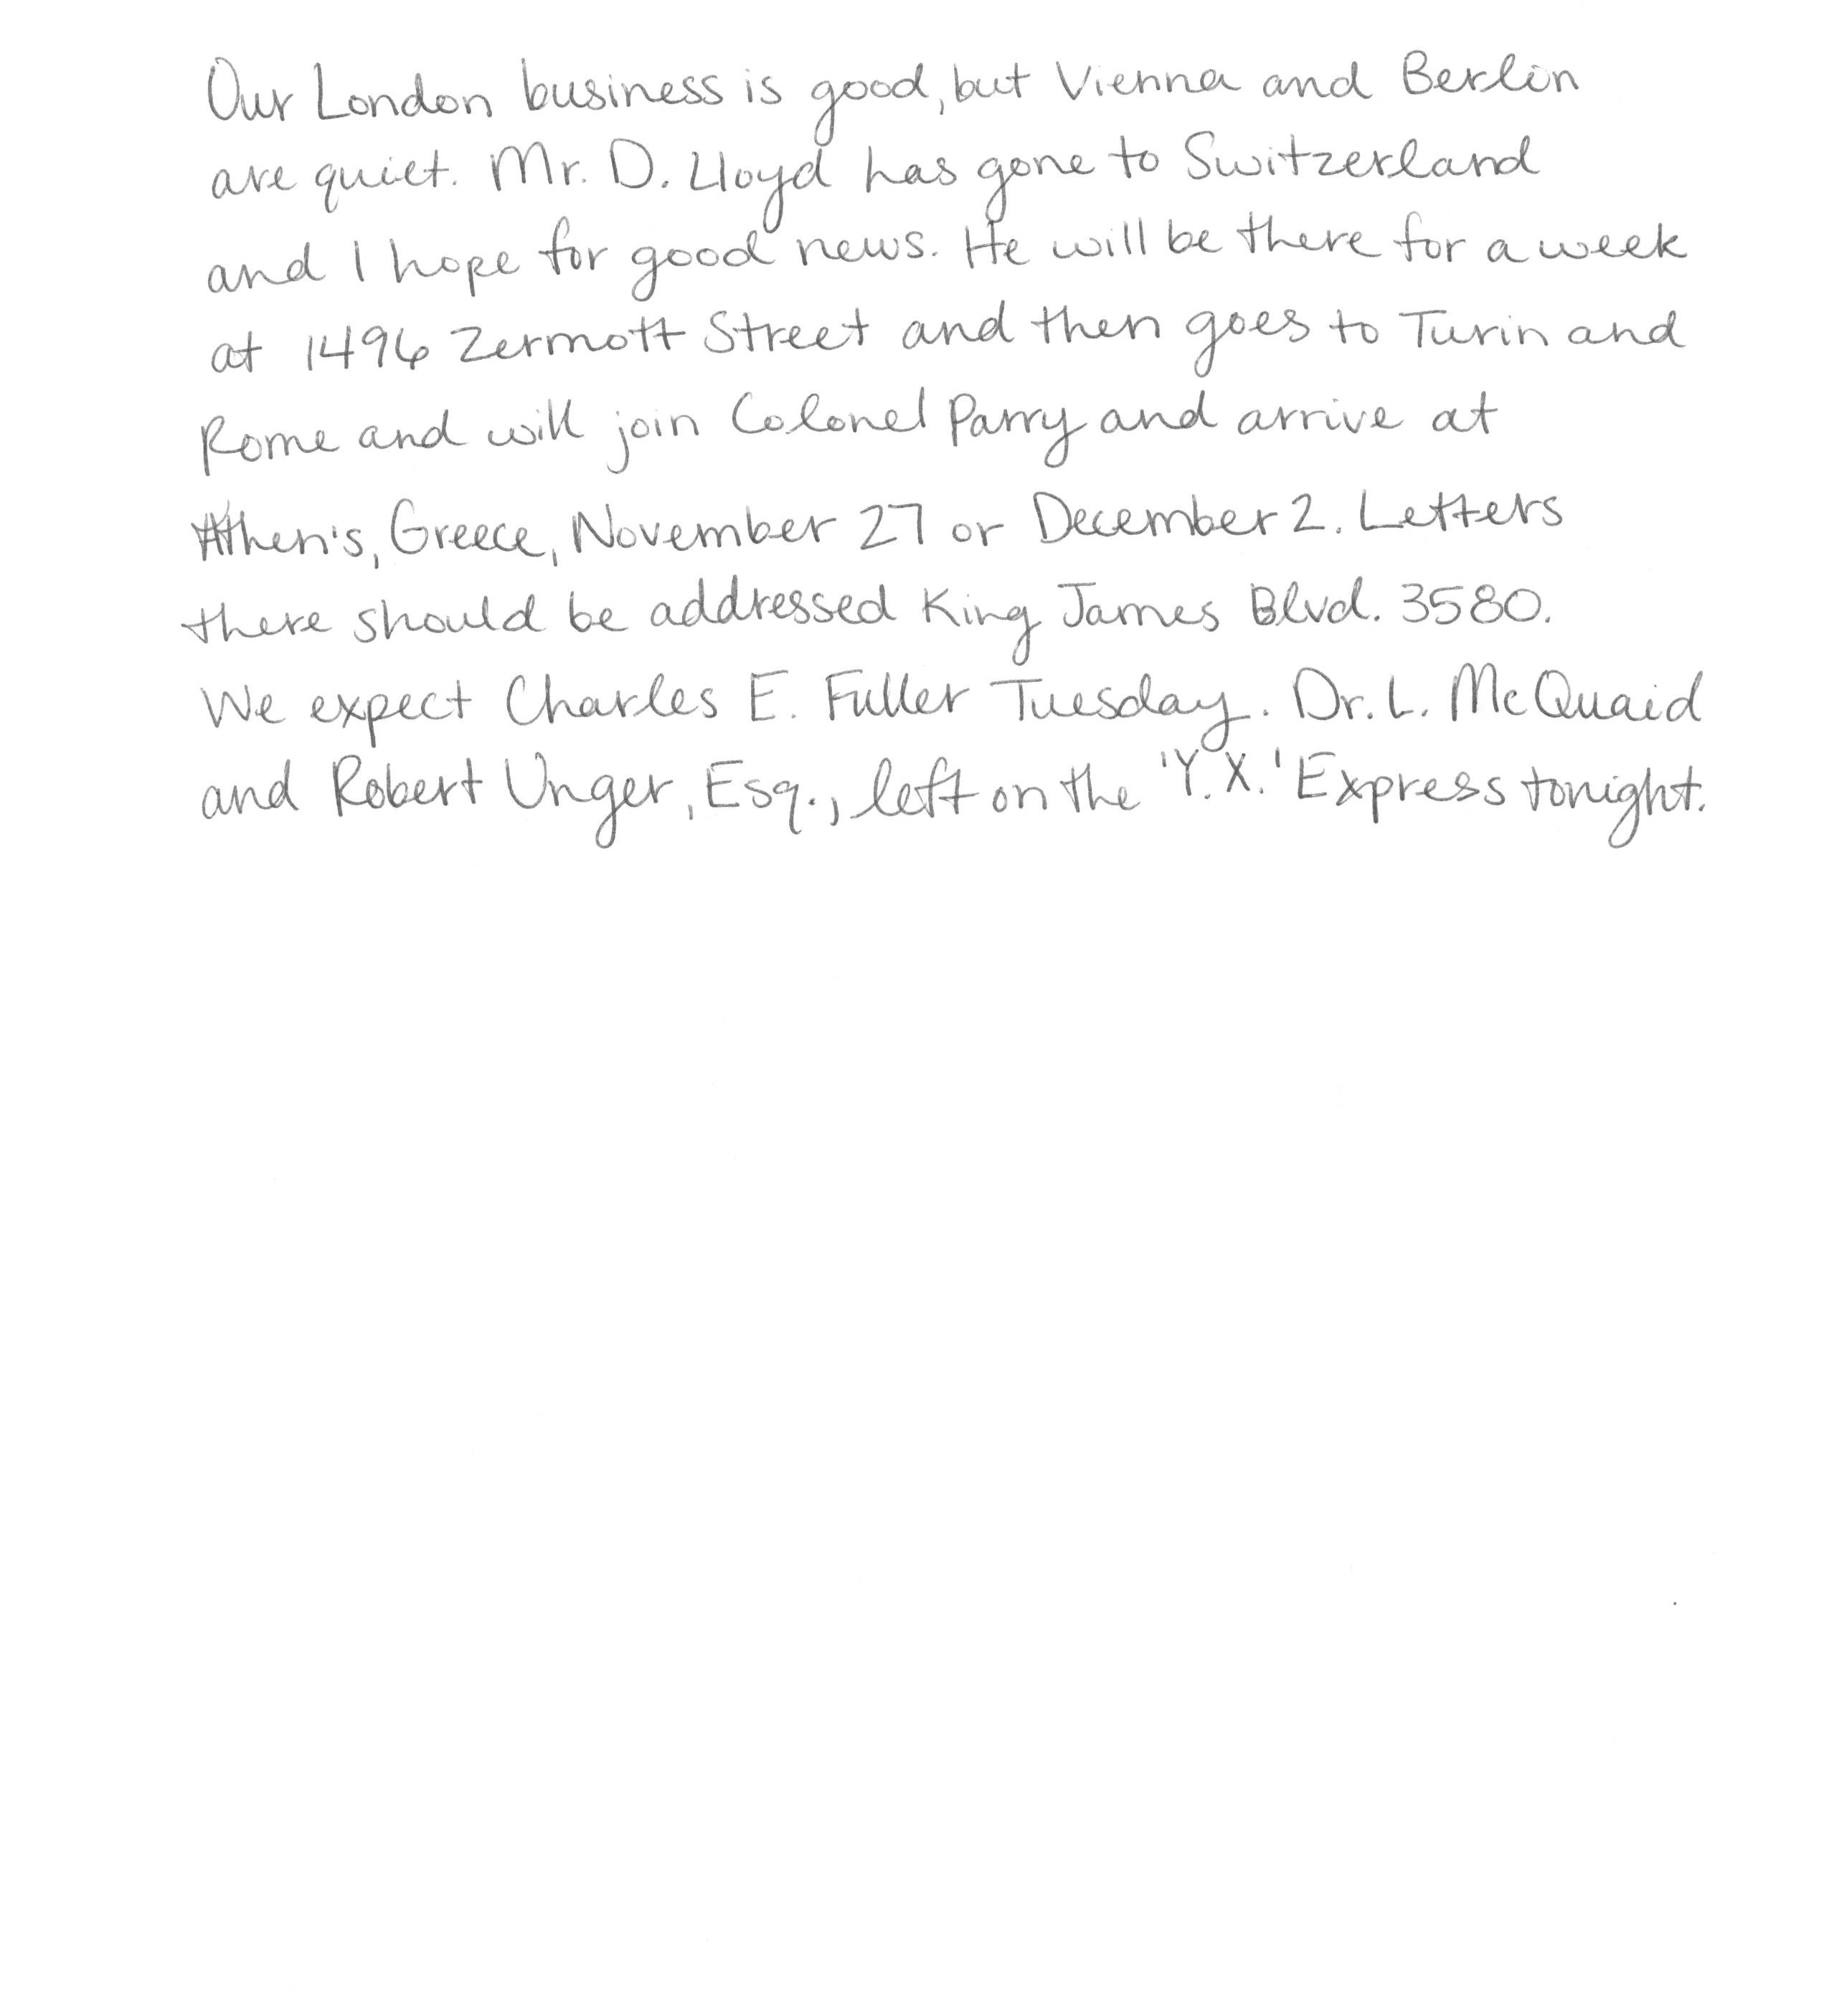 Our London business is good, but Vienna and Berlin
are quiet. Mr. D. Lloyd has gone to Switzerland
and I hope for good news. He will be there for a week
at 1496 Zermott Street and then goes to Turin and
Rome and will join Colonel Parry and arrive at
Athen's, Greece, November 27 or December 2. Letters
there should be addressed King James Blvd. 3580.
We expect Charles E. Fuller Tuesday. Dr. L. McQuaid
and Robert Unger, Esq., left on the 'Y.X.' Express tonight.